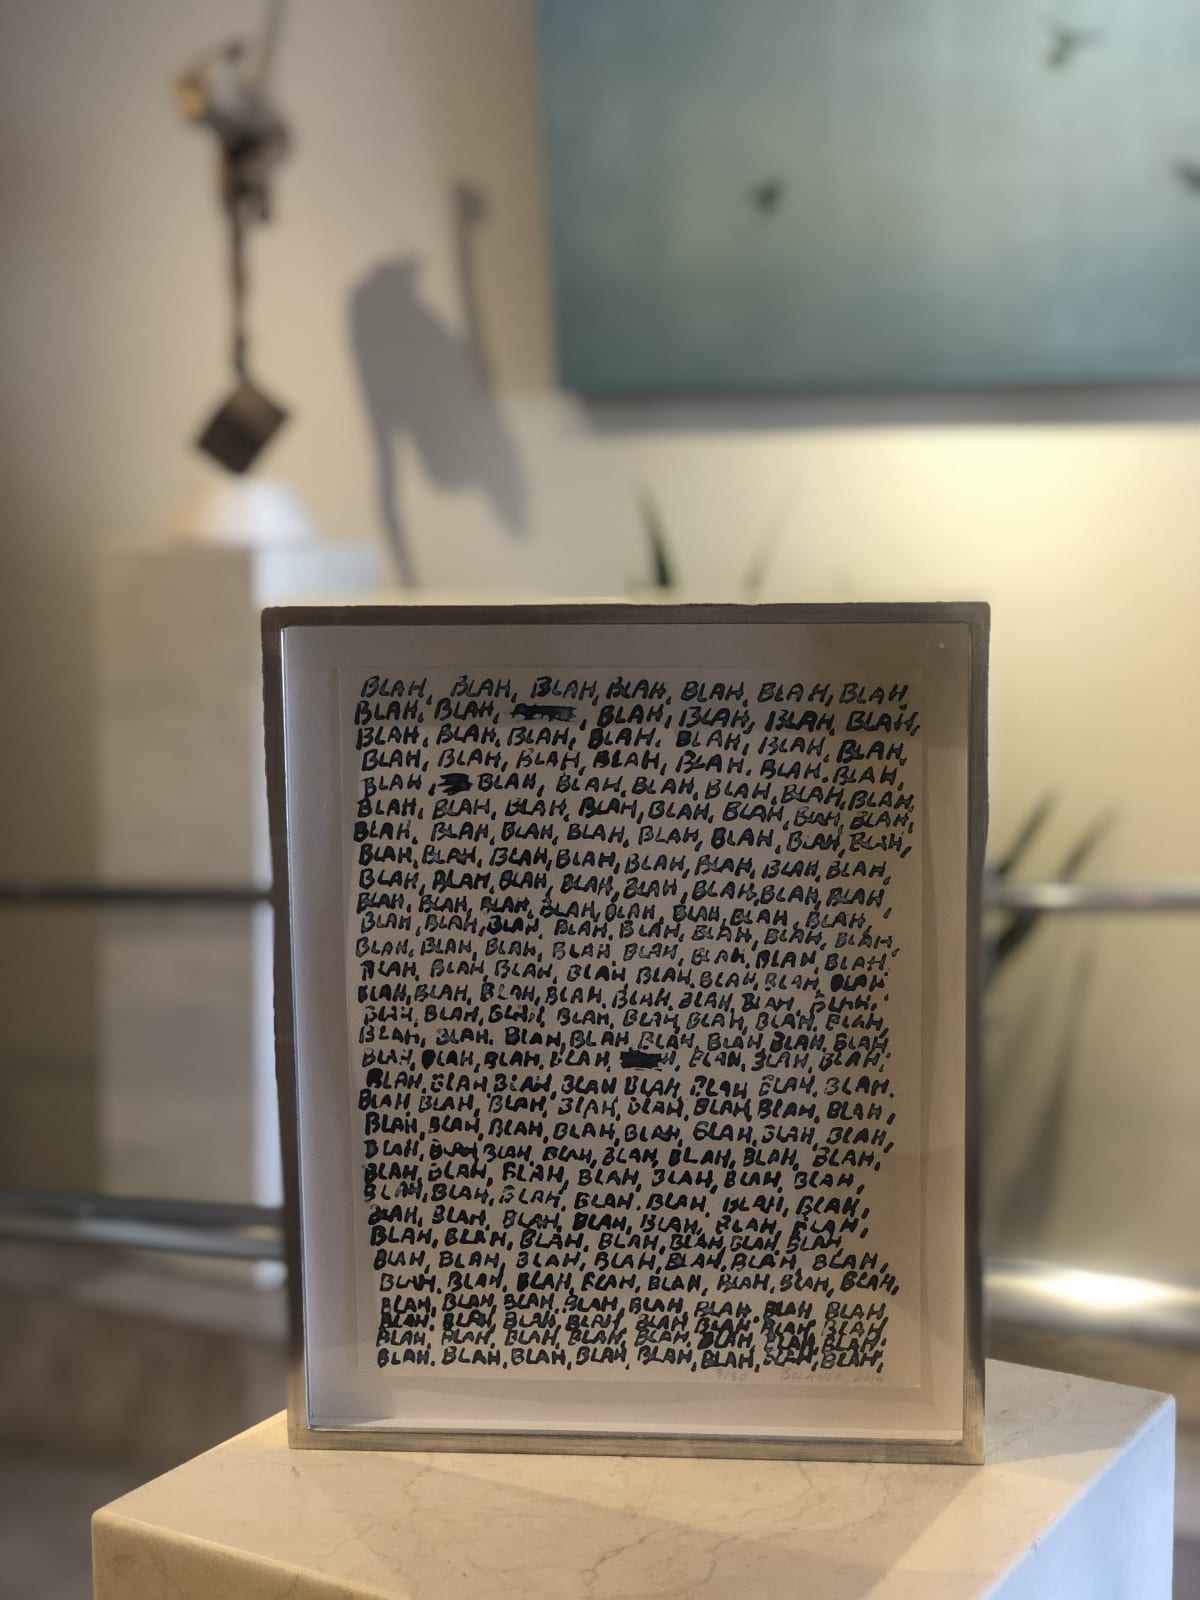 BLAH, BLAH, BLAH, BLAH, BLAH, BLAH, BLAH,
BLAH, BLAH, , BLAH, BLAH, BLAH, BLAH,
BLAH, BLAH, BLAH, BLAH, BLAH, BLAH, BLAH,
BLAH, BLAH, BLAH, BLAH, BLAH. BLAH. BLAH,
BLAH, BLAH, BLAH, BLAH, BLAH, BLAH, BLAH,
BLAH, BLAH, BLAH, BLAH, BLAH, BLAH, BLAH, BLAH,
BLAH, BLAH, BLAH, BLAH, BLAH, BLAH, BLAH, BLAH,
BLAH, BLAH, BLAH, BLAH, BLAH, BLAH, BLAH, BLAH,
BLAH, BLAH, BLAH, BLAH, BLAH, BLAH, BLAH, BLAH,
BLAH, BLAH, BLAH, BLAH, BLAH, BLAH, BLAH, BLAH,
BLAH, BLAH, BLAH, BLAH, BLAH, BLAH, BLAH, BLAH,
BLAH, BLAH, BLAH, BLAH, BLAH, BLAH, BLAH, BLAH,
BLAH, BLAH, BLAH, BLAH, BLAH, BLAH, BLAH, BLAH
BLAH, BLAH, BLAH, BLAH, BLAH, BLAH, BLAH, BLAH,
BLAH, BLAH, BLAH, BLAH, BLAH, BLAH, BLAH, BLAH,
BLAH, BLAH, BLAH, BLAH, BLAH, BLAH, BLAH, BLAH
BLAH, BLAH, BLAH, BLAH, BLAH, BLAH, BLAH,
BLAH, BLAH, BLAH, BLAH, BLAH, BLAH, BLAH, BLAH.
BLAH, BLAH, BLAH, BLAH, BLAH, BLAH, BLAH, BLAH,
BLAH, BLAH, BLAH, BLAH, BLAH, BLAH, BLAH, BLAH,
BLAH, BLAH, BLAH, BLAH, BLAH, BLAH, BLAH, BLAH,
BLAH, BLAH, BLAH, BLAH, BLAH, BLAH, BLAH,
BLAH, BLAH, BLAH, BLAH, BLAH, BLAH, BLAH,
BLAH, BLAH, BLAH, BLAH, BLAH, BLAH, BLAH,
BLAH, BLAH, BLAH, BLAH, BLAH, BLAH, BLAH
BLAH, BLAH, BLAH, BLAH, BLAH, BLAH, BLAH,
BLAH, BLAH, BLAH, BLAH, BLAH, BLAH, BLAH, BLAH,
BLAH, BLAH, BLAH, BLAH, BLAH, BLAH, BLAH, BLAH
BLAH, BLAH, BLAH, BLAH, BLAH, BLAH, BLAH, BLAH
BLAH, BLAH, BLAH, BLAH, BLAH, BLAH, BLAH, BLAH,
BLAH, BLAH, BLAH, BLAH, BLAH, BLAH, BLAH, BLAH,